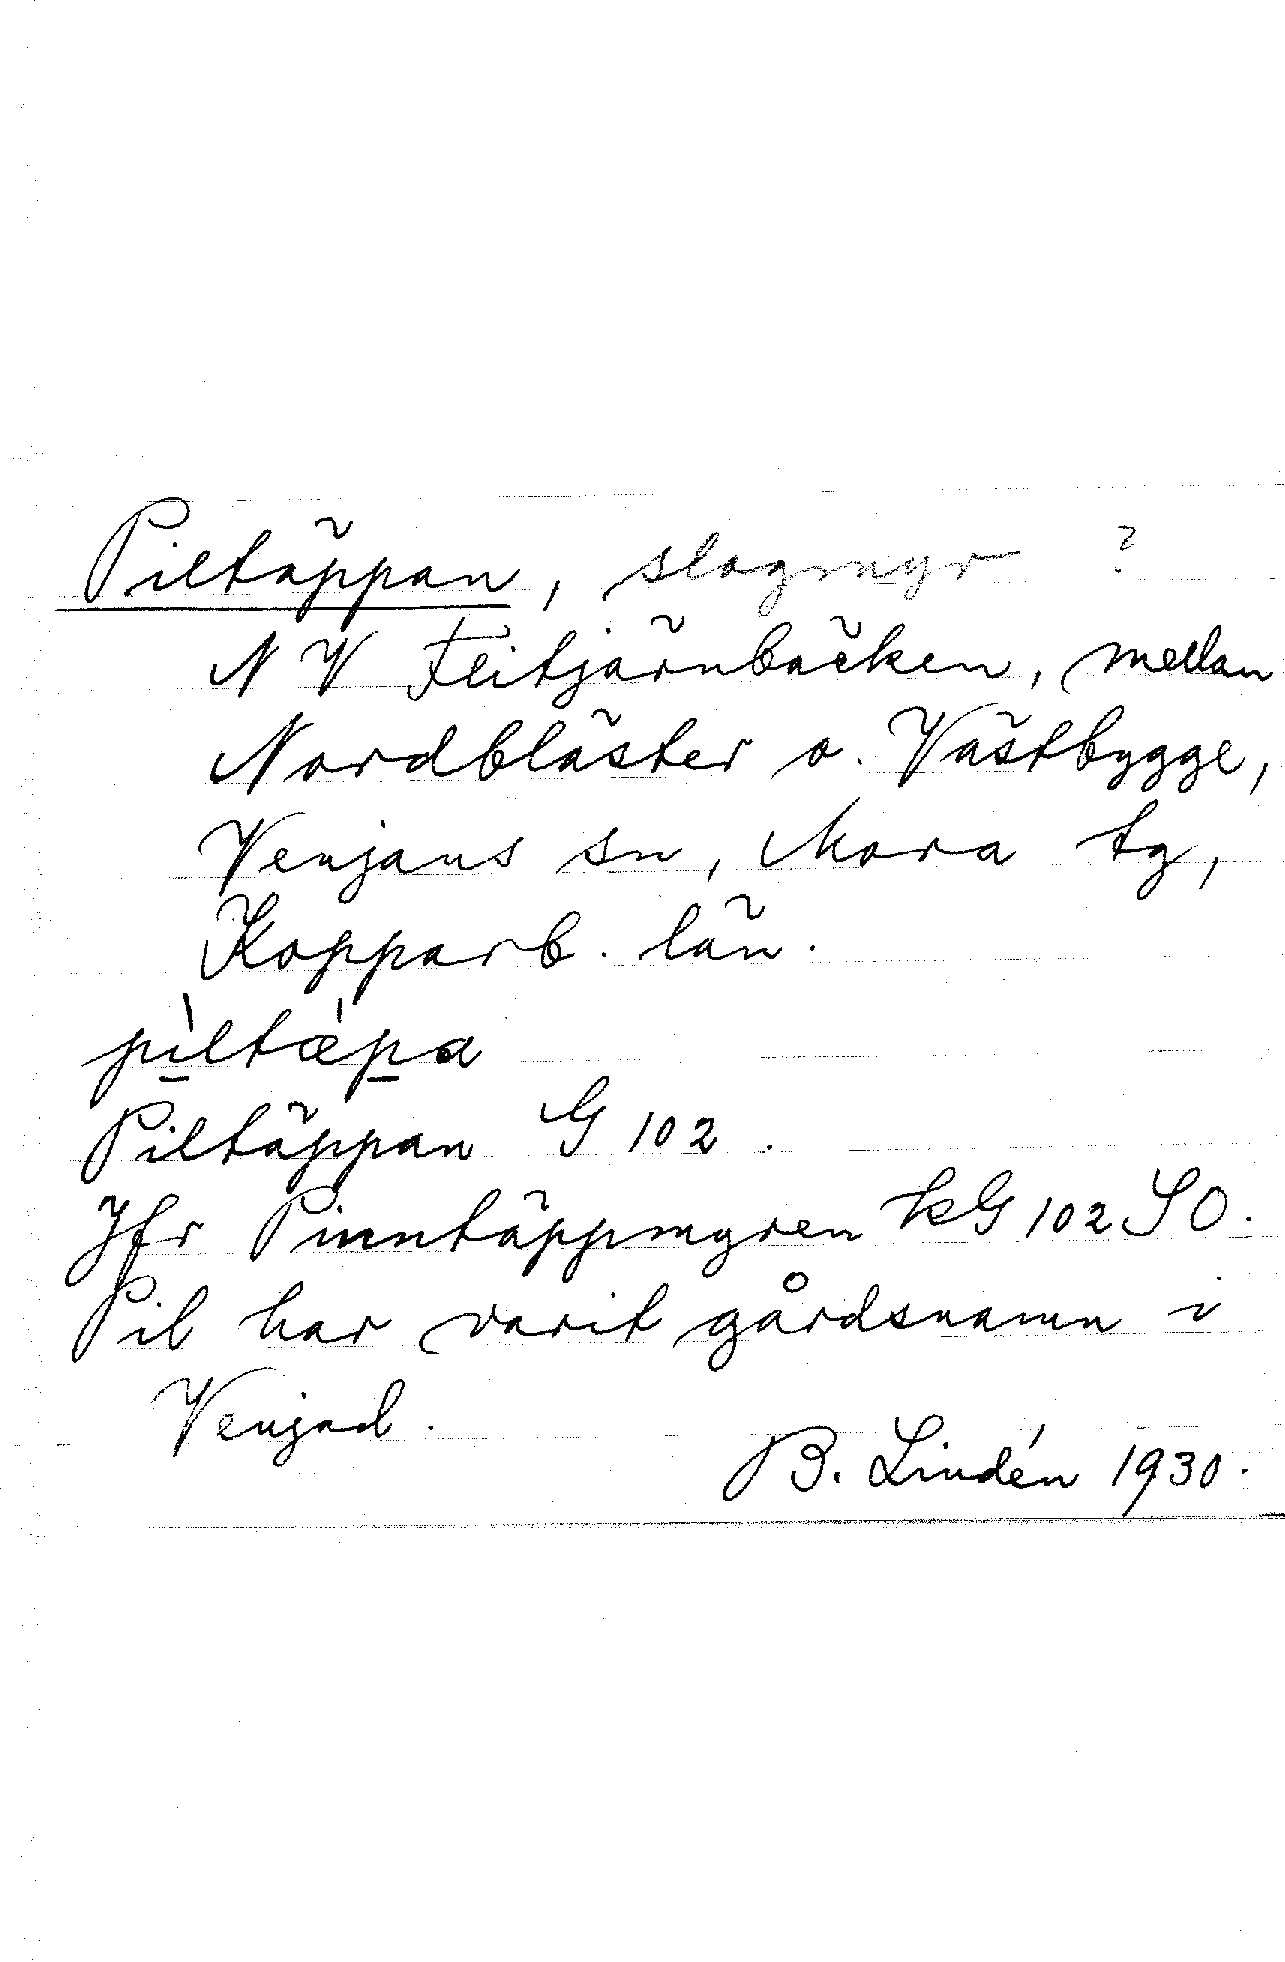 Piltäppan, slogmyr ?
N V Flitjärnbäcken, mellan
Nordbläster o. Västbygge,
Venjans sn, Mora tg,
Kopparb. län.
pìltæ̀pa
Piltäppan G 102.
Jfr Pinntäppmyren kG 102 SO.
Pil har varit gårdsnamn i
Venjad.
B. Lindén 1930.